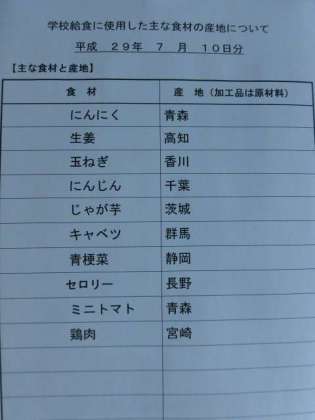 学校給食に使用した主な食材の産地について
平成 29年 7 月 10日分
【主な食材と産地】
食 材 産 地（加工品は原材料）
にんにく 青森
生姜 高知
玉ねぎ 香川
にんじん 千葉
じゃが芋 茨城
キャベツ 群馬
青梗菜 静岡
セロリー 長野
ミニトマト 青森
鶏肉 宮崎